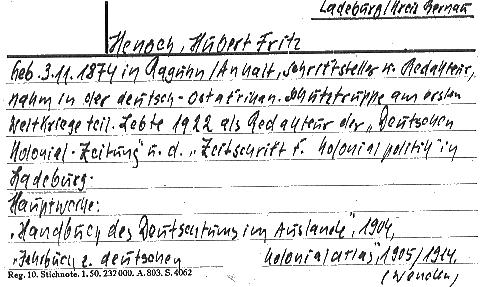 Ladeburg/Kreis Bernau
Henoch, Hubert Fritz
Geb. 3.11.1874 in Raguhn/Anhalt, Schriftsteller u. Redakteur,
nahm in der deutsch-ostafrikan. Schutztruppe am ersten
Weltkriege teil. Lebte 1922 als Redakteur der „Deutschen
Kolonial-Zeitung" u. d. „Zeitschrift f. Kolonialpolitik" in
Ladeburg.
Hauptwerke:
„Handbuch des Deutschtums im Auslande", 1904,
„Jahrbuch z. deutschen Kolonialatlas", 1905/1914
Reg. 10. Stichnote. 1. 50. 232000. A. 803. S. 4062